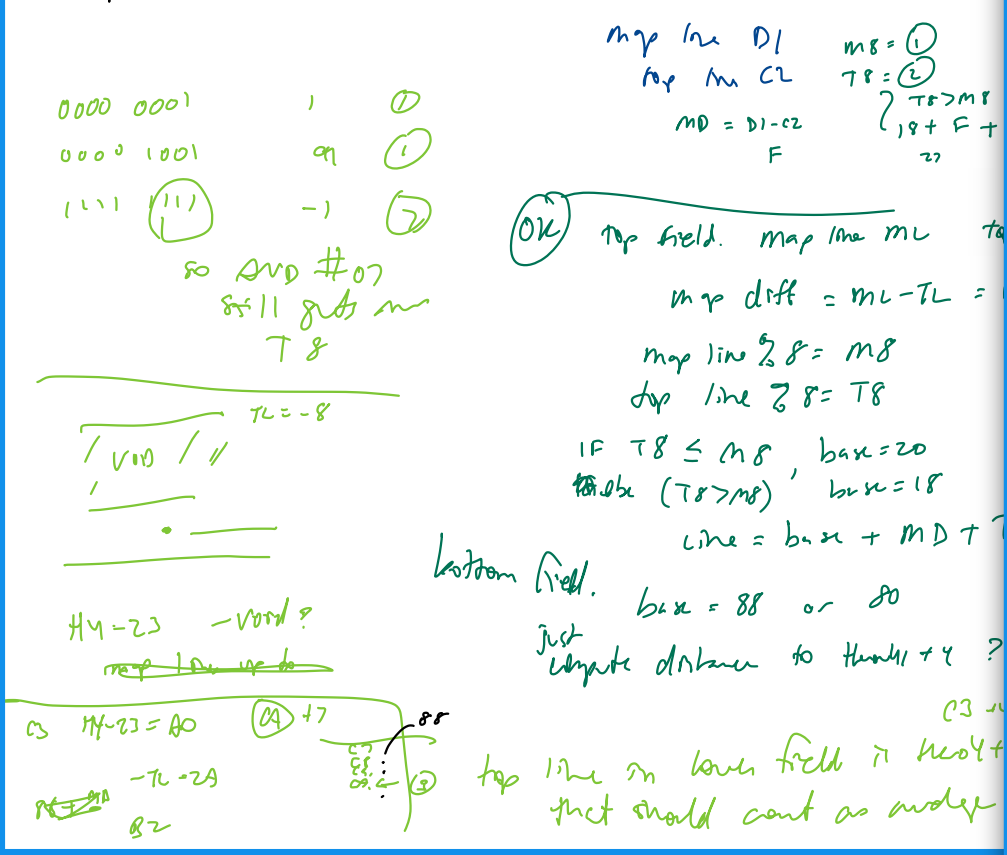 0000 0001 1 ①
0000 1001 9 ①
1111 1111 -1 7
so AND #07
still gets me
T8
TL = -8
VOID
H4-23 - void?
C3 H4-23 = A0 CA +7
-TL = 2A
B2
88
C7
C8
C9
map line D1
top line C2
MD = D1-C2
F
M8 = ①
T8 = ②
T8>M8
18 + F +
27
OK top field. map line ML
map diff = ML-TL =
map line % 8 = M8
top line % 8 = T8
IF T8 ≤ M8, base = 20
else (T8>M8) base = 18
Line = base + MD +
bottom field.
base = 88 or 80
just
compute distance to +4 ?
C3
top line in lower field is
that should count as